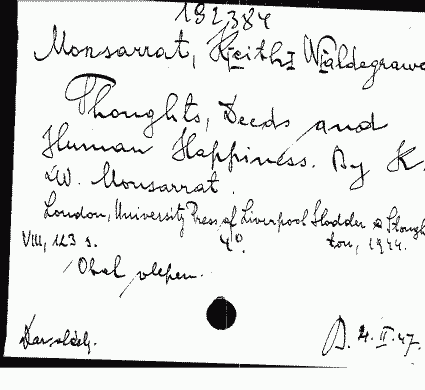 192384
Monsarrat, Keith Waldegrave
Thoughts, Deeds and
Human Happiness. By K.
W. Monsarrat.
London, University Press of Liverpool Hodder & Stough-
VIII, 123 s. 4°. ton, 1944.
Obal vlepen.
4.II.47.